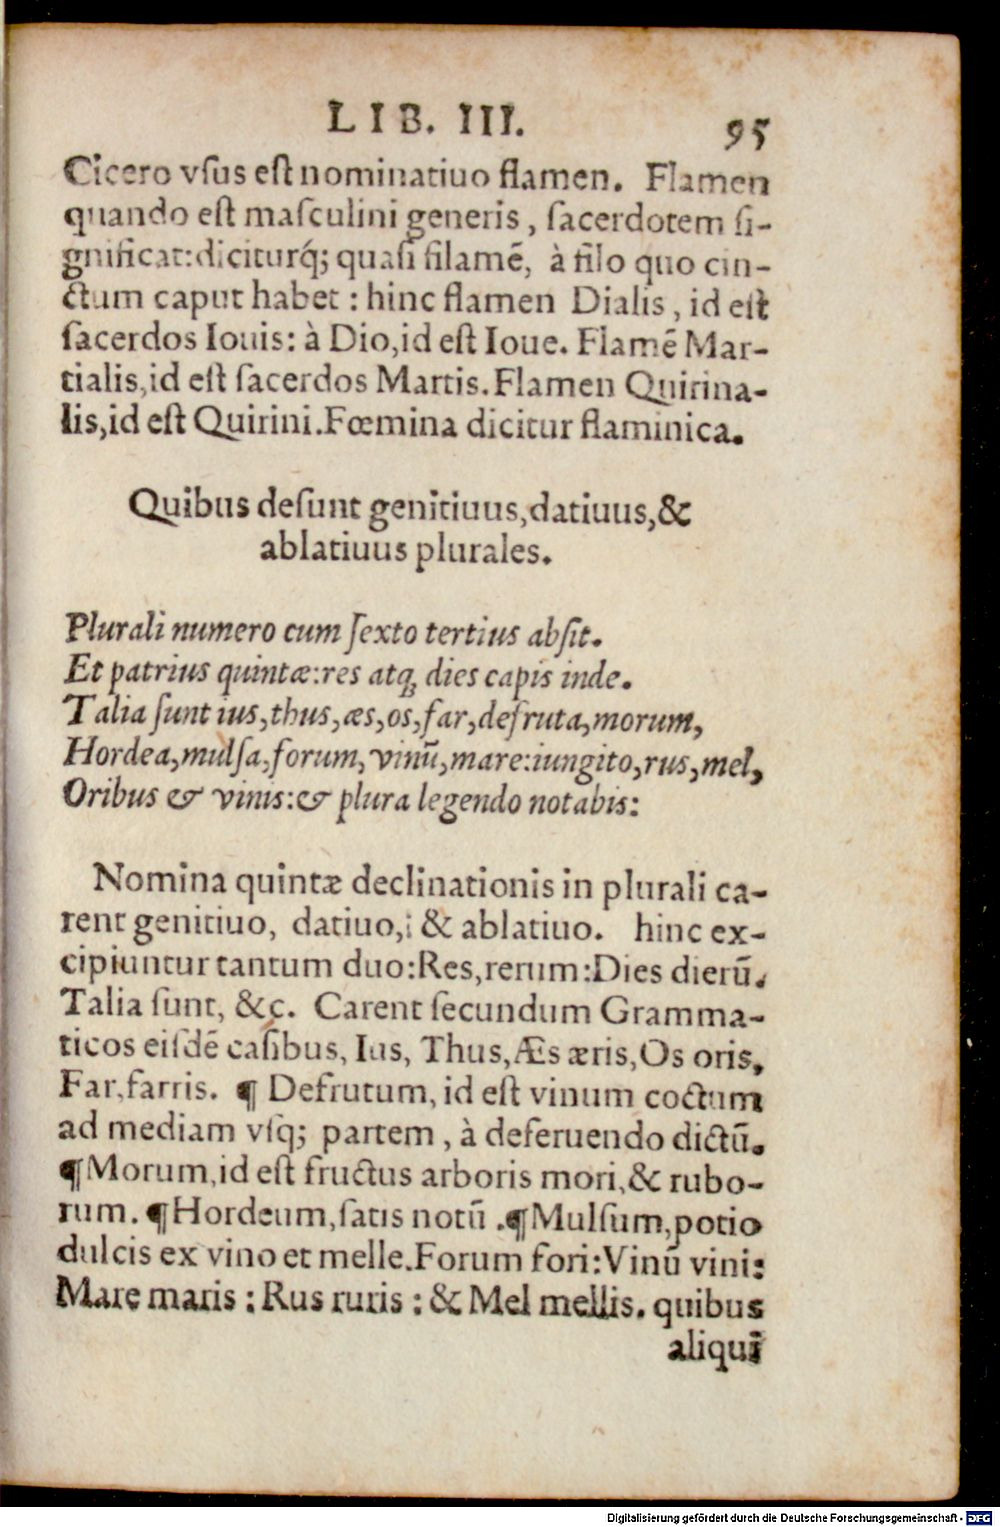 LIB. III.
95
Cicero vſus eſt nominatiuo flamen. Flamen
quando eſt maſculini generis, ſacerdotem ſi-
gnificat:diciturq́; quaſi filamẽ, à filo quo cin-
ctum caput habet : hinc flamen Dialis, id eſt
ſacerdos Iouis: à Dio,id eſt Ioue. Flamẽ Mar-
tialis,id eſt ſacerdos Martis.Flamen Quirina-
lis,id eſt Quirini.Fœmina dicitur flaminica.
Quibus deſunt genitiuus,datiuus,&
ablatiuus plurales.
Plurali numero cum ſexto tertius abſit.
Et patrius quintæ:res atq; dies capis inde.
Talia ſunt ius,thus,æs,os,far,defruta,morum,
Hordea,mulſa,forum,vinũ,mare:iungito,rus,mel,
Oribus & vinis:& plura legendo notabis:
Nomina quintæ declinationis in plurali ca-
rent genitiuo, datiuo, & ablatiuo. hinc ex-
cipiuntur tantum duo:Res,rerum:Dies dierũ.
Talia ſunt, &c. Carent ſecundum Gramma-
ticos eiſdẽ caſibus, Ius, Thus,Æs æris,Os oris,
Far,farris. ¶ Defrutum, id eſt vinum coctum
ad mediam vſq; partem, à deferuendo dictũ.
¶Morum,id eſt fructus arboris mori,& rubo-
rum. ¶Hordeum,ſatis notũ .¶Mulſum,potio
dulcis ex vino et melle.Forum fori:Vinũ vini:
Mare maris : Rus ruris : & Mel mellis. quibus
aliqui
Digitalisierung gefördert durch die Deutsche Forschungsgemeinschaft - DFG